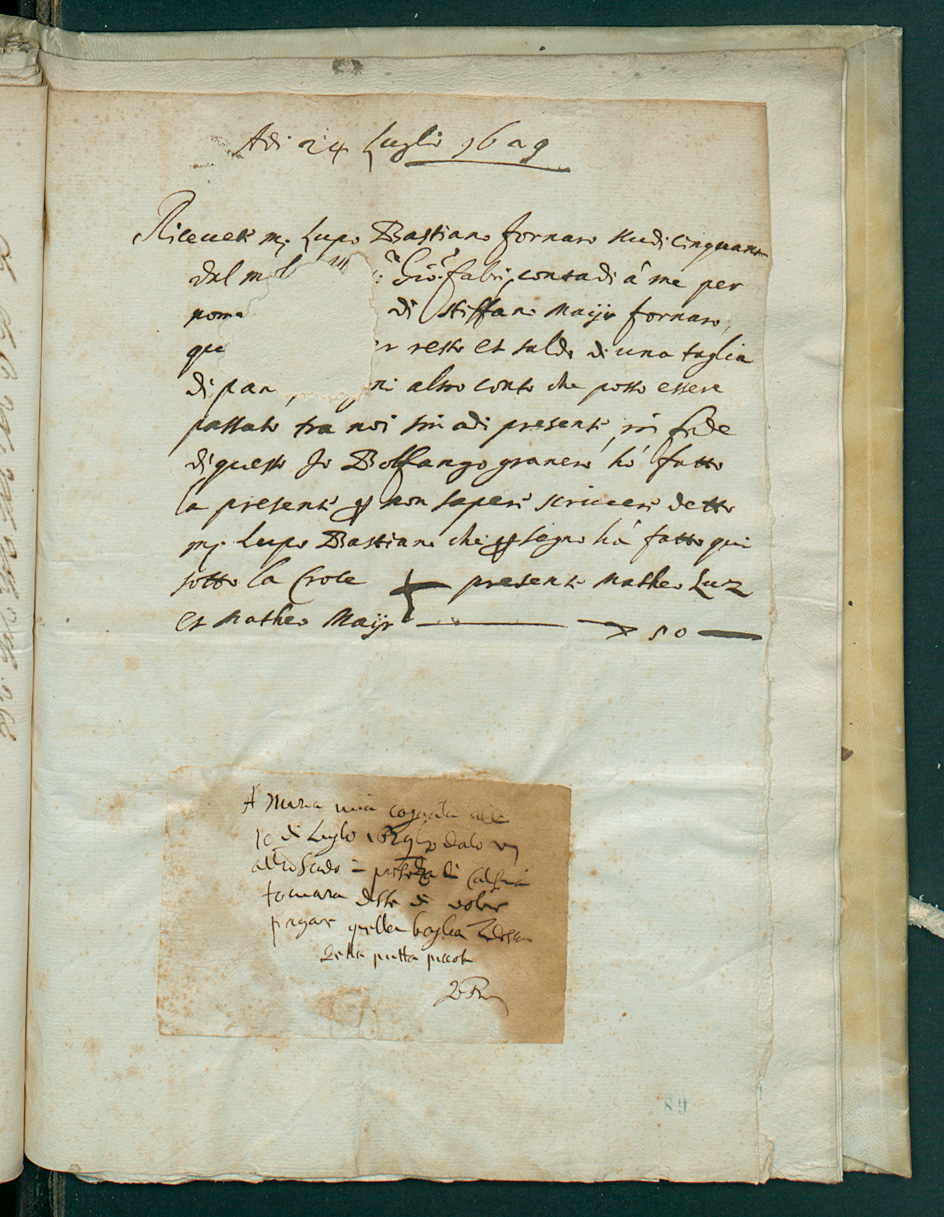 Adi 24 Luglio 1629
Riceueti mj. Lupo Bastiano fornaro scudi cinquanta
dal m Giō: fabri, contadi à me per
nome di Stiffano Maijr fornaro,
que er resto et saldo di una taglia
di pan ni altro conto che posso essere
passato tra noi sin adi presente, in fede
di questo Io Bolfango granero hò fatto
la presente ꝑ non sapere scriuere detto
mj. Lupo Bastiano che ꝑ segno hà fatto qui
sotto la Croce + presenti Matheo Luz
et Matheo Maijr 50
A Maria mia cognata alli
di Luglio 1629 dato un
altro scudo in di
disse di voler
pagar quella
della putta picola